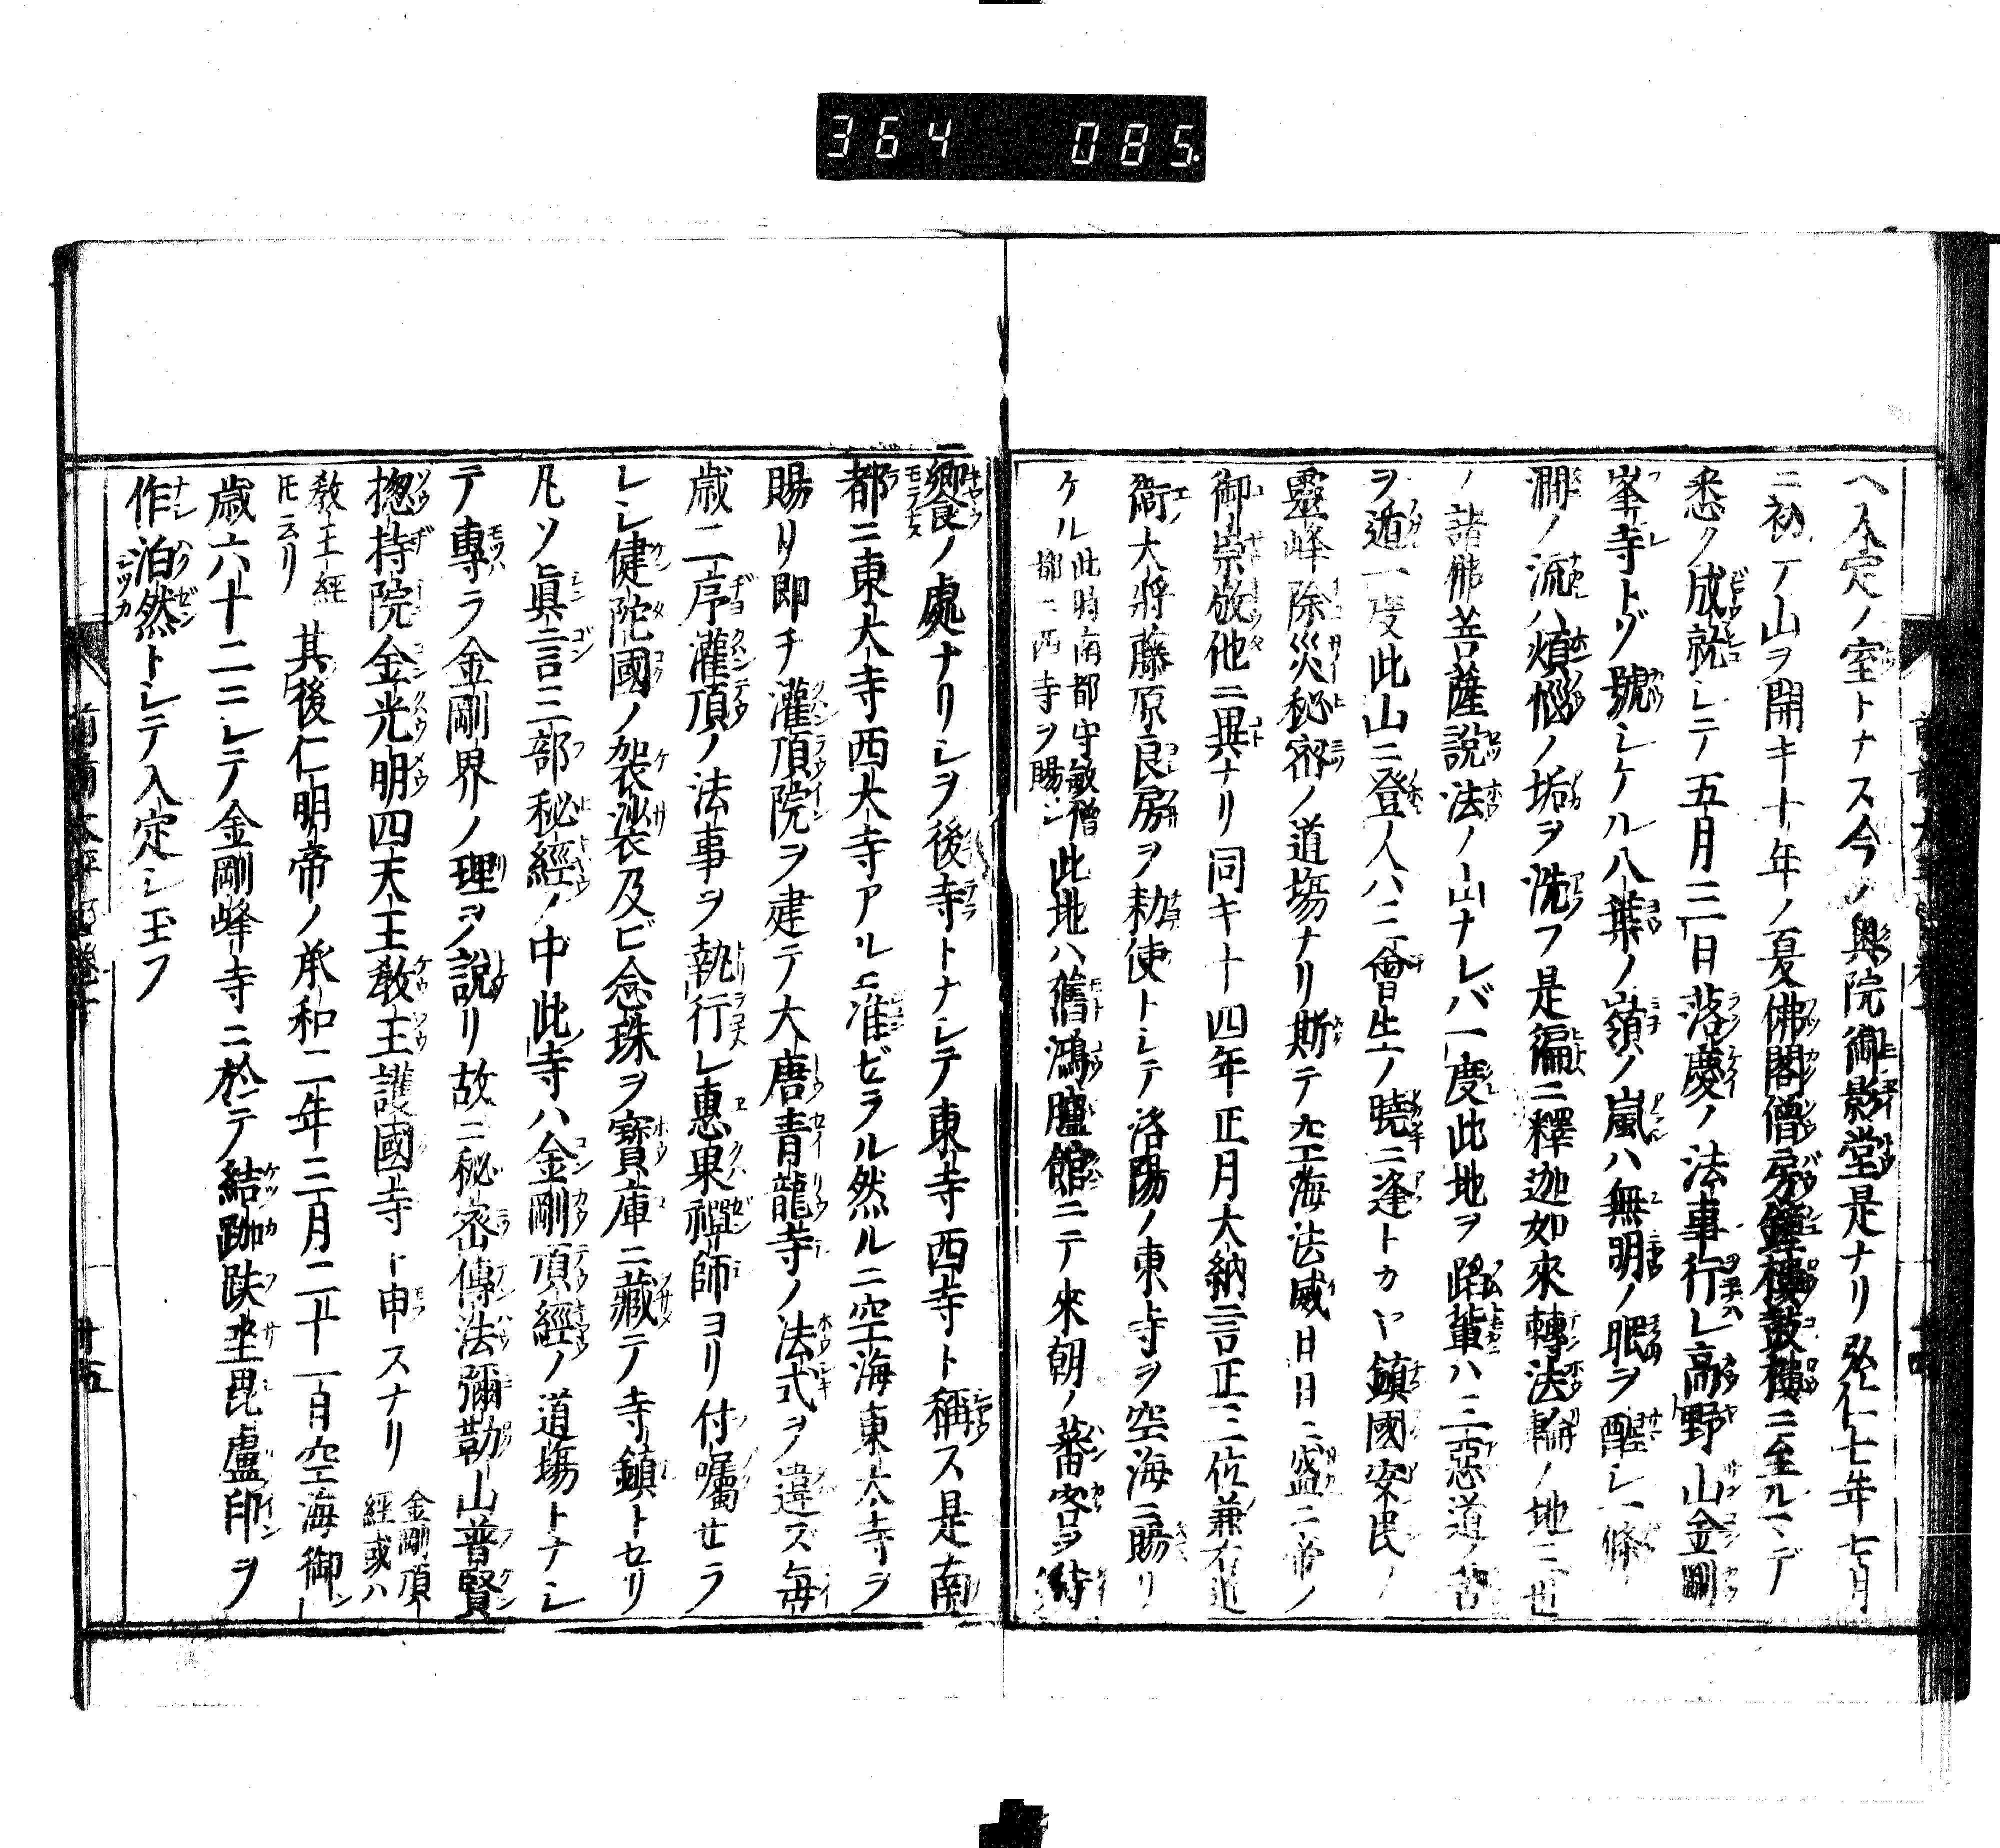 364 085
ヘ入定ノ室トナス今ノ奥院御影堂是ナリ弘仁七年七月
ニ初テ山ヲ開キ十年ノ夏佛閣僧房鐘樓鼓樓ニ至ルマデ
悉ク成就シテ五月三日落慶ノ法事行レ高野山金剛
峯寺トゾ號シケル八葉ノ嶺ノ嵐ハ無明ノ眠ヲ醒シ一條ノ
澗ノ流ハ煩惱ノ垢ヲ洗フ是偏ニ釋迦如來轉法輪ノ地三世
ノ諸佛菩薩說法ノ山ナレバ一度此地ヲ踏輩ハ三惡道ノ苦
ヲ遁一度此山ニ登ノ人ハ三會生ノ曉ニ逢トカヤ鎮國安民ノ
靈峰除災秘密ノ道場ナリ斯テ空海法威日日ニ盛ニ帝ノ
御崇敬他ニ異ナリ同キ十四年正月大納言正三位兼右近
衞大將藤原良房ヲ勅使トシテ洛陽ノ東寺ヲ空海ニ賜リ
ケル
此時南都守敏僧
都ニ西寺ヲ賜シ
此地ハ舊鴻臚館ニテ來朝ノ蕃客ヲ待
饗ノ處ナリシヲ後寺トナシテ東寺西寺ト稱ス是南
都ニ東大寺西大寺アルニ准ビラル然ルニ空海東大寺ヲ
賜リ即チ灌頂院ヲ建テ大唐青龍寺ノ法式ヲ違ズ每
歲二序灌頂ノ法事ヲ執行レ惠果禪師ヨリ付囑セラ
レシ健陀國ノ袈裟衣及ビ念珠ヲ寶庫ニ藏テ寺鎮トセリ
凡ソ眞言三部秘經ノ中此寺ハ金剛頂經ノ道場トナシ
テ專ラ金剛界ノ理ヲ說リ故ニ秘密傳法彌勒山普賢
揔持院金光明四天王敎王護國寺ト申スナリ
金剛頂
經或ハ
敎王經
トモ云リ
其後仁明帝ノ承和二年三月二十一日空海御
歲六十二ニシテ金剛峰寺ニ於テ結跏趺坐毘盧印ヲ
作泊然トシテ入定シ玉フ
十五